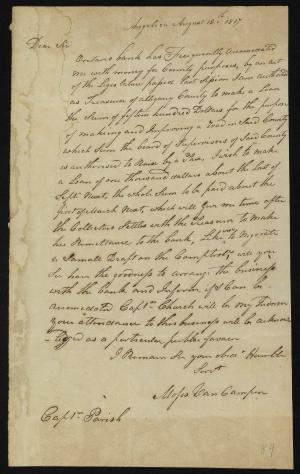 Angelica August 18th 1817
Dear Sir
Ontario bank has Frequently accomodated
me with money for County purposes, by an act
of the Legislature passed last Session I am authorised
as Treasurer of allegany County to make a Loan
the Sum of fifteen hundred Dollars for the purpose
of making and Improving a road in Said County
which Sum the board of Supervisors of Said County
is authorised to Raise by a Tax. I wish to make
a Loan of one thousand dollars about the last of
Septr Next, the whole Sum to be paid about the
first of March Next, which will give me time after
the Collectors Settle with the Treasurer to Make
the Remittance to the bank, Likewise to Negotiate
a Small Draft on the Comptroler will you
Sir have the goodness to arrange the business
with the bank and Inform if I Can be
accomodated Captn Church will be my
your attendance to this business will be acknow
-ledged as a perticular publick favour
I Remain Sir your obdt Humble
Servt
Moses Van Campen
Captn Parish